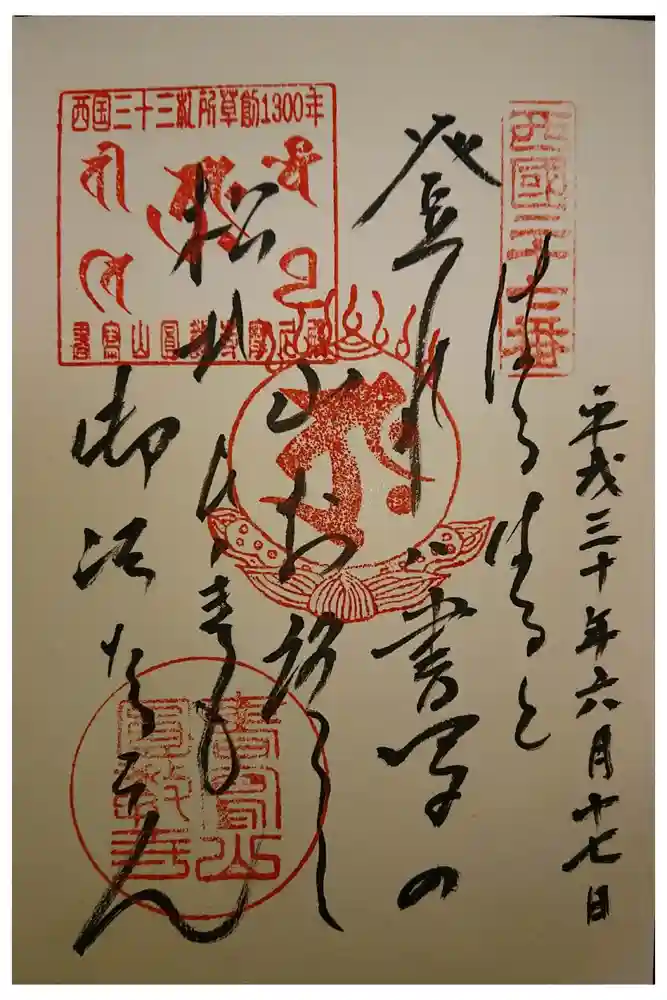 西國二十七番
平成三十年六月十七日
はるばると
登れハ書写の
山おろし
松のひびきも
御法なるらん
西国三十三札所草創1300年
書寫山圓教寺摩尼殿
書寫山
圓教寺